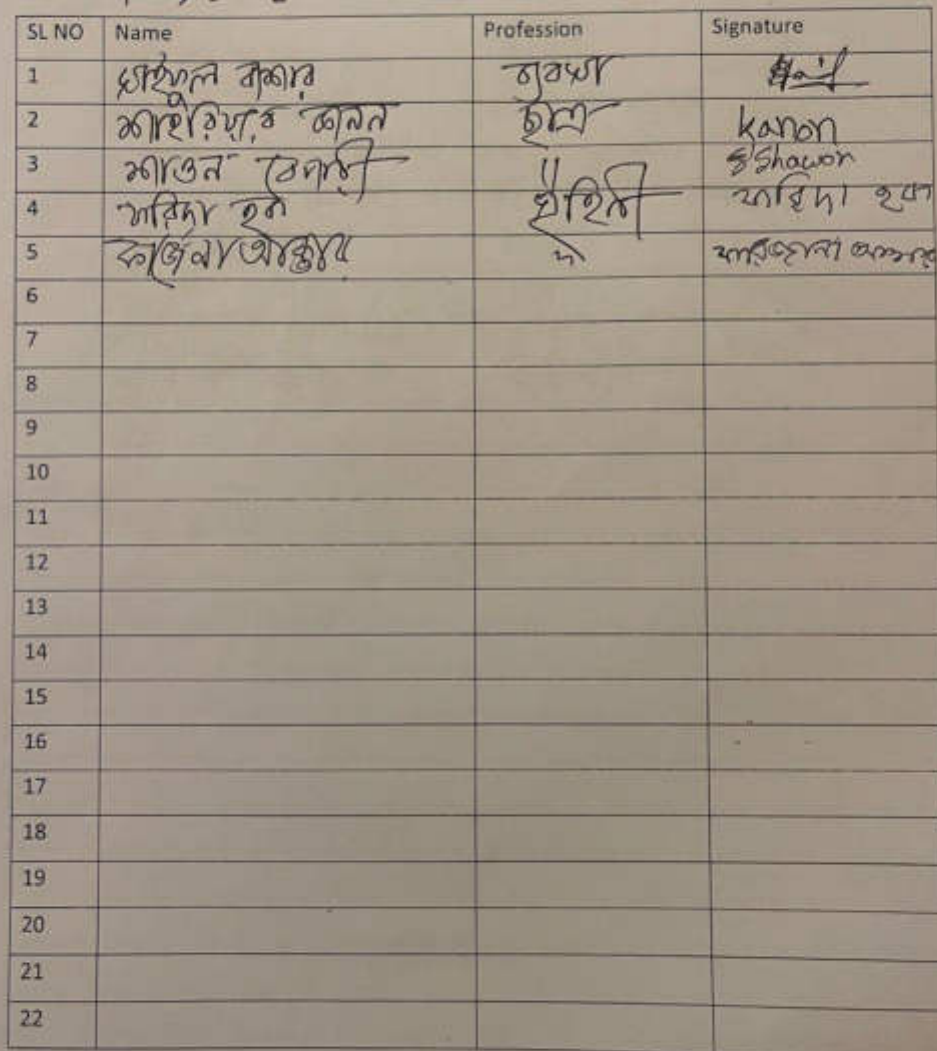 SL NO Name Profession Signature
1 সাইফুল বাশার ব্যবসা
2 শাহরিয়ার কানন ছাত্র Kanon
3 শাওন বেপারী " Shawon
4 ফরিদা হক গৃহিনী ফরিদা হক
5 আক্তার
6
7
8
9
10
11
12
13
14
15
16
17
18
19
20
21
22